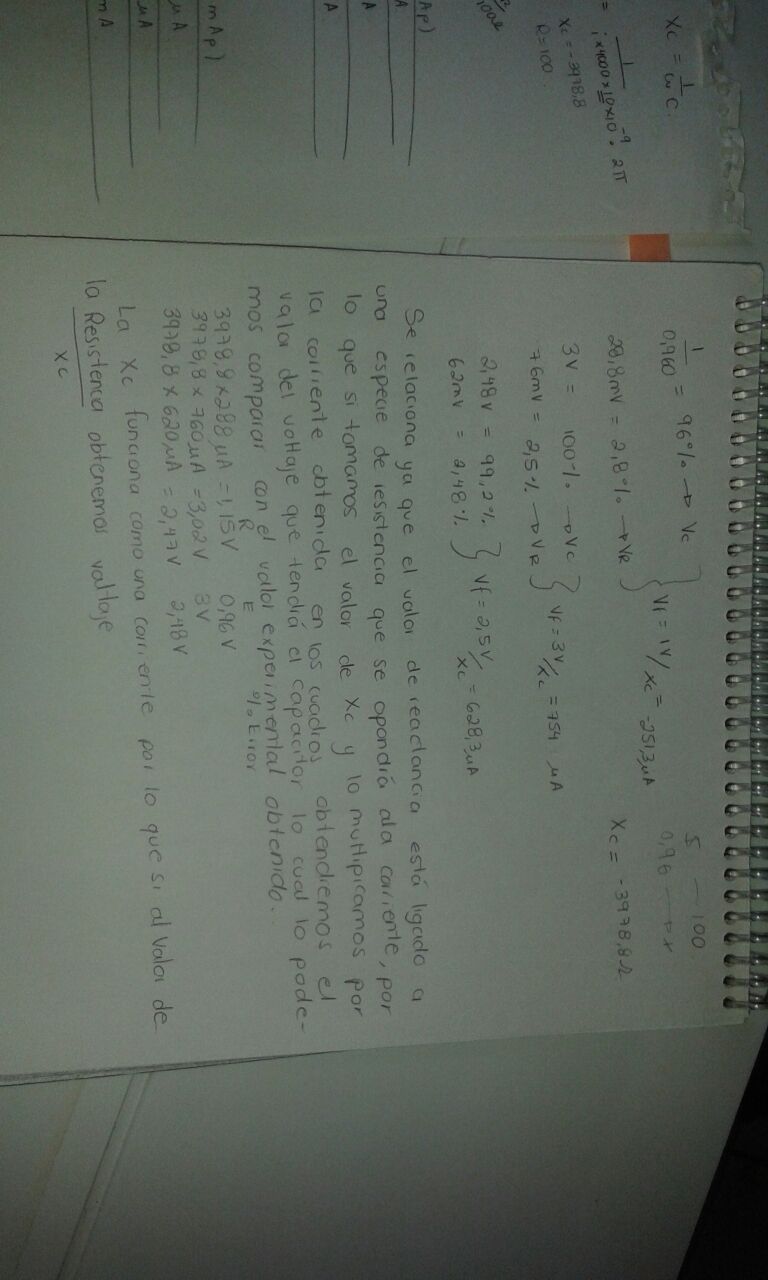 Xc = 1/ωC
= 1/(i×4000×10×10⁻⁹ · 2π)
Xc = -3978,8
R=100
Ap)
A
A
A
mAp)
μA
μA
mA
1/0,960 = 96% → Vc
28,8mV = 2,8% → VR
} Vf = 1V/Xc = -251,3μA
5 — 100
0,96 → x
Xc = -3978,8Ω
3V = 100% → Vc
76mV = 2,5% → VR
} Vf = 3V/Xc = 754 μA
2,48V = 99,2%
62mV = 2,48%
} Vf = 2,5V/Xc = 628,3μA
Se relaciona ya que el valor de reactancia está ligado a
una especie de resistencia que se opondrá ala corriente, por
lo que si tomamos el valor de Xc y lo multipicamos por
la corriente obtenida en los cuadros obtendremos el
valor del voltaje que tendrá el capacitor lo cual lo pode-
mos comparar con el valor experimental obtenido.
R E % Error
3978,8 × 288 μA = 1,15V 0,96V
3978,8 × 760μA = 3,02V 3V
3978,8 × 620μA = 2,47V 2,48V
La Xc funciona como una corriente por lo que si al valor de
la Resistenca obtenemos voltaje
Xc